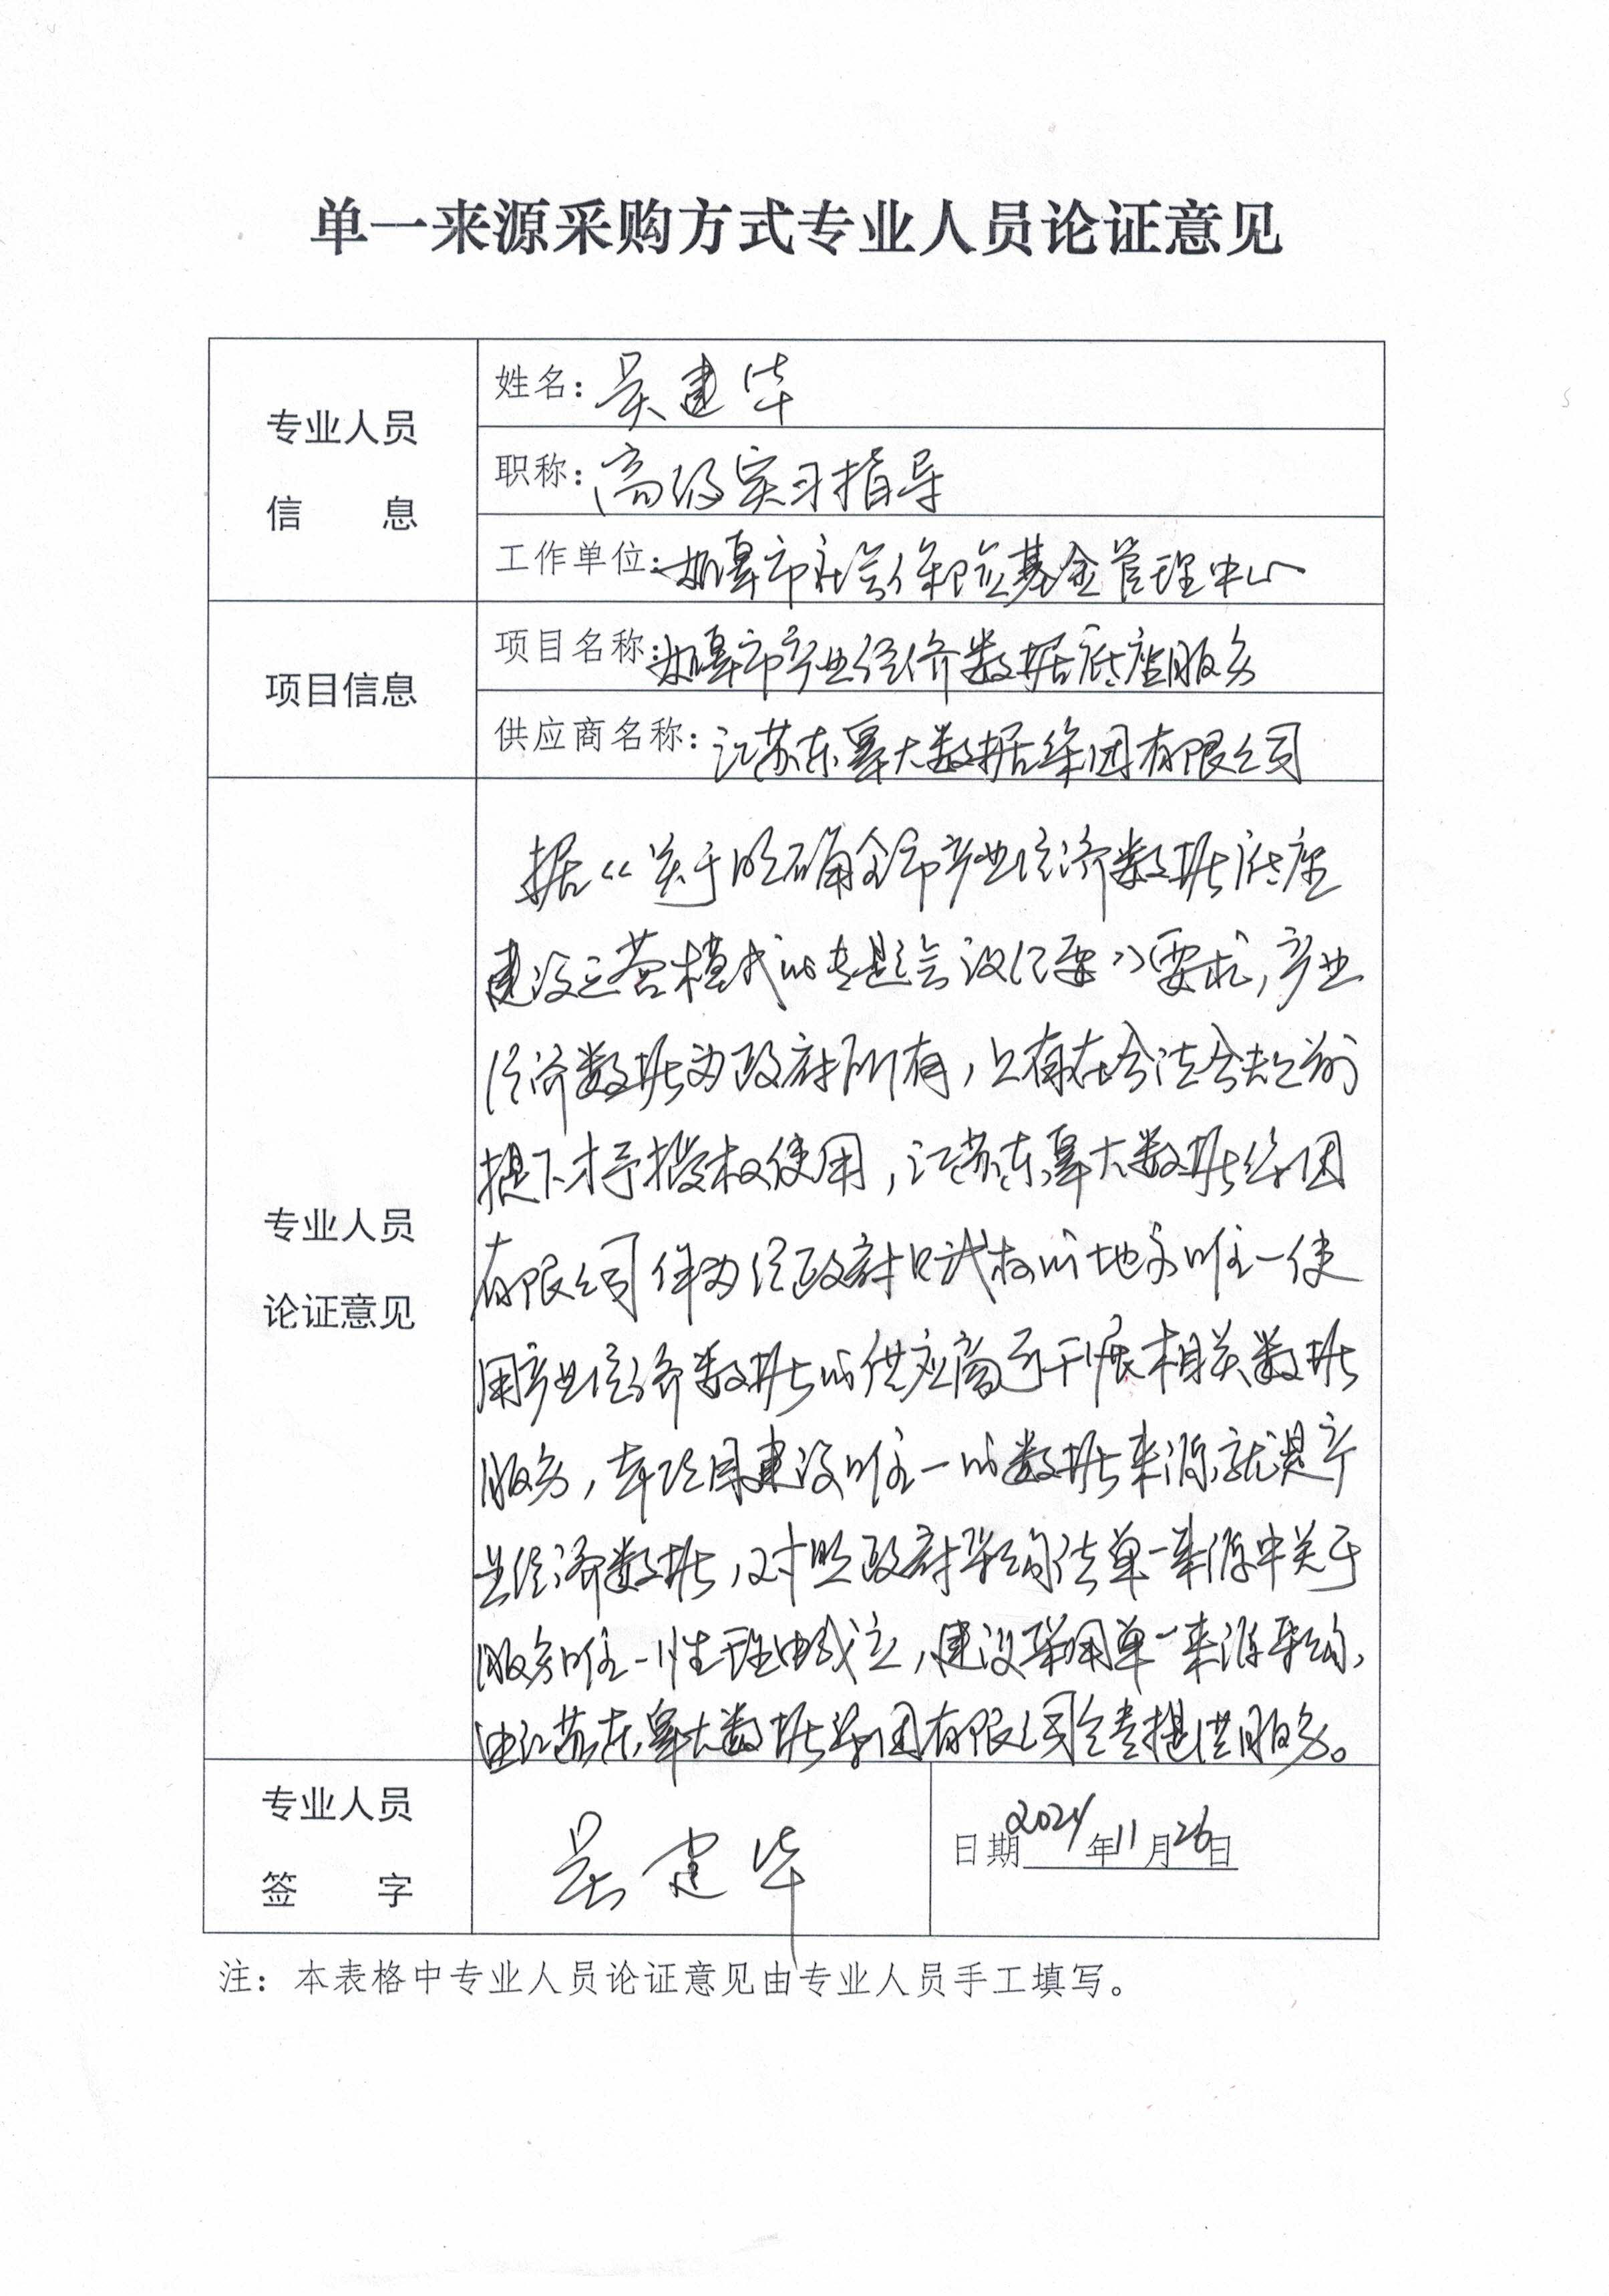 单一来源采购方式专业人员论证意见
专业人员
信 息
姓名：吴建华
职称：高级实习指导
工作单位：如皋市社会保险基金管理中心
项目信息
项目名称：如皋市产业经济数据底座服务
供应商名称：江苏东皋大数据集团有限公司
专业人员
论证意见
据《关于明确全市产业经济数据底座
建设运营模式的专题会议纪要》要求，产业
经济数据为政府所有，只有在合法合规之前
提下才予授权使用，江苏东皋大数据集团
有限公司作为经政府授权的地方唯一使
用产业经济数据的供应商可开展相关数据
服务，本项目建设唯一的数据来源就是产
业经济数据，对照政府采购法单一来源中关于
服务唯一性理由成立，建议采用单一来源采购，
由江苏东皋大数据集团有限公司负责提供服务。
专业人员
签 字
吴建华
日期2024年11月26日
注：本表格中专业人员论证意见由专业人员手工填写。